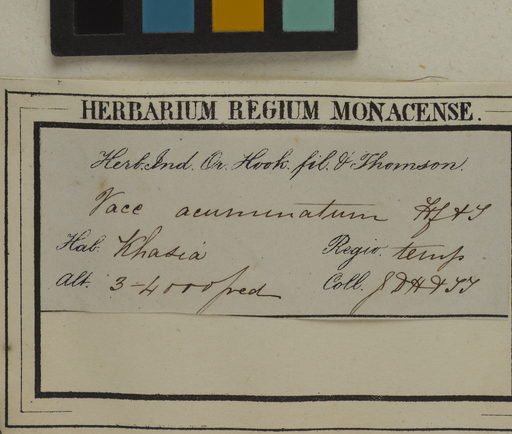 HERBARIUM REGIUM MONACENSE.
Herb. Ind. Or. Hook. fil. & Thomson.
Vacc acuminatum Hf & T
Hab. Khasia Regio. temp
Alt. 3-4000 ped Coll. J D H & T T